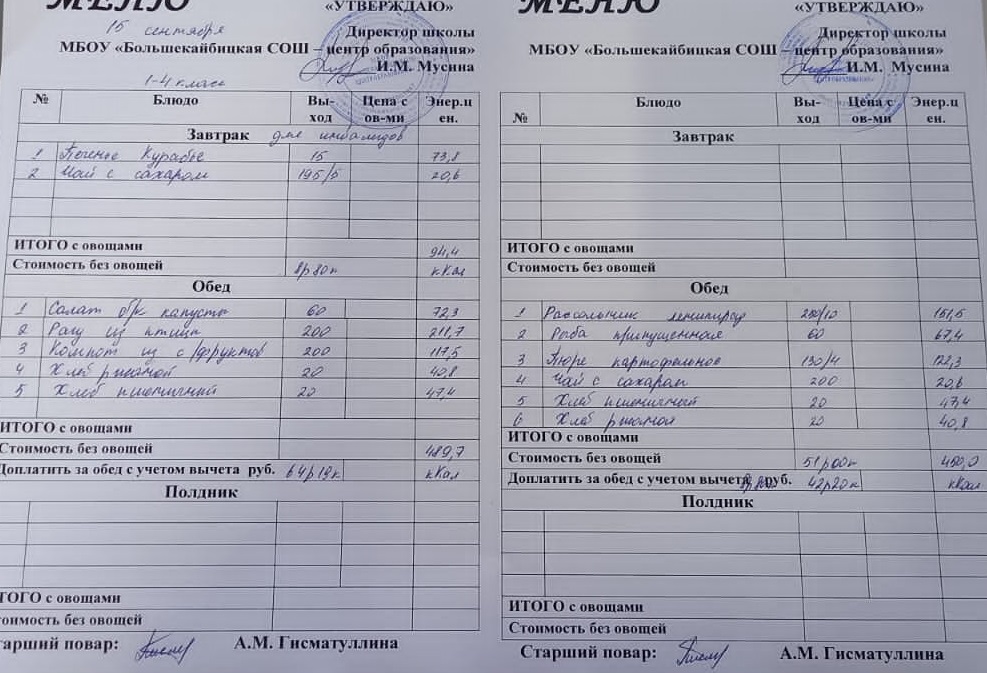 МЕНЮ «УТВЕРЖДАЮ»
15 сентября Директор школы
МБОУ «Большекайбицкая СОШ – центр образования»
И.М. Мусина
1-4 класс
№ Блюдо Вы-ход Цена с ов-ми Энер.ц ен.
Завтрак для инвалидов
1 Печенье Курабье 15 73,8
2 Чай с сахаром 195/5 20,6
ИТОГО с овощами 94,4
Стоимость без овощей 8р80к кКал
Обед
1 Салат б/к капусты 60 72,3
2 Рагу из птицы 200 211,7
3 Компот из с/фруктов 200 117,5
4 Хлеб ржаной 20 40,8
5 Хлеб пшеничный 20 47,4
ИТОГО с овощами
Стоимость без овощей 489,7
Доплатить за обед с учетом вычета руб. 64р19к кКал
Полдник
ИТОГО с овощами
тоимость без овощей
тарший повар: А.М. Гисматуллина
МЕНЮ «УТВЕРЖДАЮ»
Директор школы
МБОУ «Большекайбицкая СОШ – центр образования»
И.М. Мусина
№ Блюдо Вы-ход Цена с ов-ми Энер.ц ен.
Завтрак
ИТОГО с овощами
Стоимость без овощей
Обед
1 Рассольник ленинград 200/10 151,5
2 Рыба припущенная 60 67,4
3 Пюре картофельное 130/4 122,3
4 Чай с сахаром 200 20,6
5 Хлеб пшеничный 20 47,4
6 Хлеб ржаной 20 40,8
ИТОГО с овощами
Стоимость без овощей 51р00к 450,0
Доплатить за обед с учетом вычета руб. 42р20к кКал
Полдник
ИТОГО с овощами
Стоимость без овощей
Старший повар: А.М. Гисматуллина